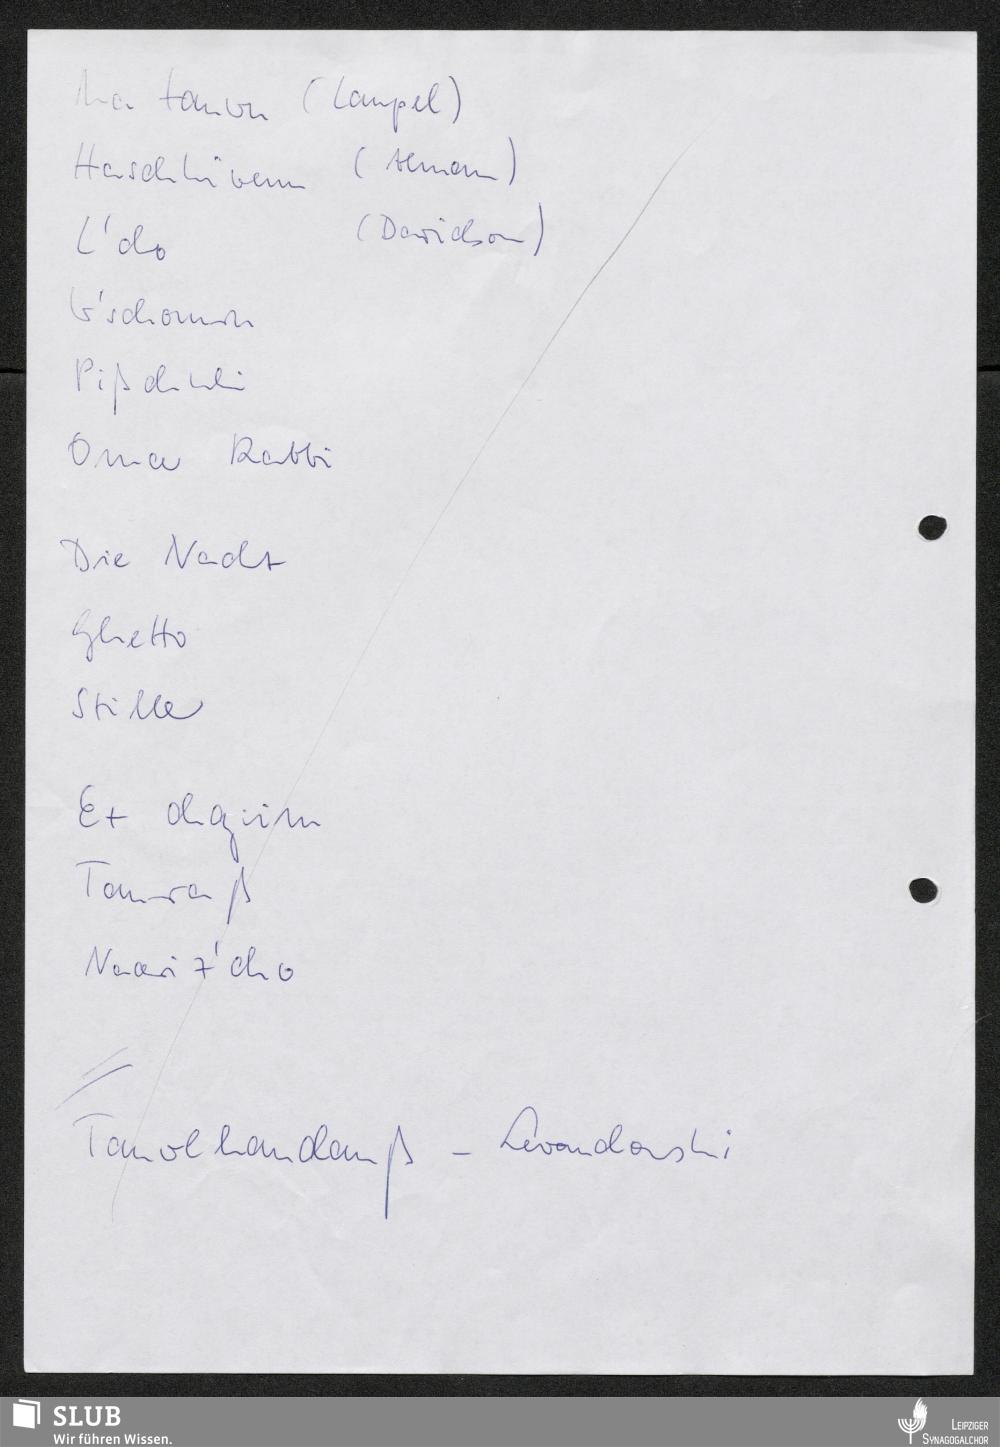 Ma tauwu (Lampel)
Haschkiwenu (Alman)
L'cho (Davidson)
W'schomru
Pißchuli
Omar Rabbi
Die Nacht
Ghetto
Stille
Et chajim
Tauraß
Naariz'cho
Taulhandauß - Lewandowski
SLUB
Wir führen Wissen.
LEIPZIGER
SYNAGOGALCHOR